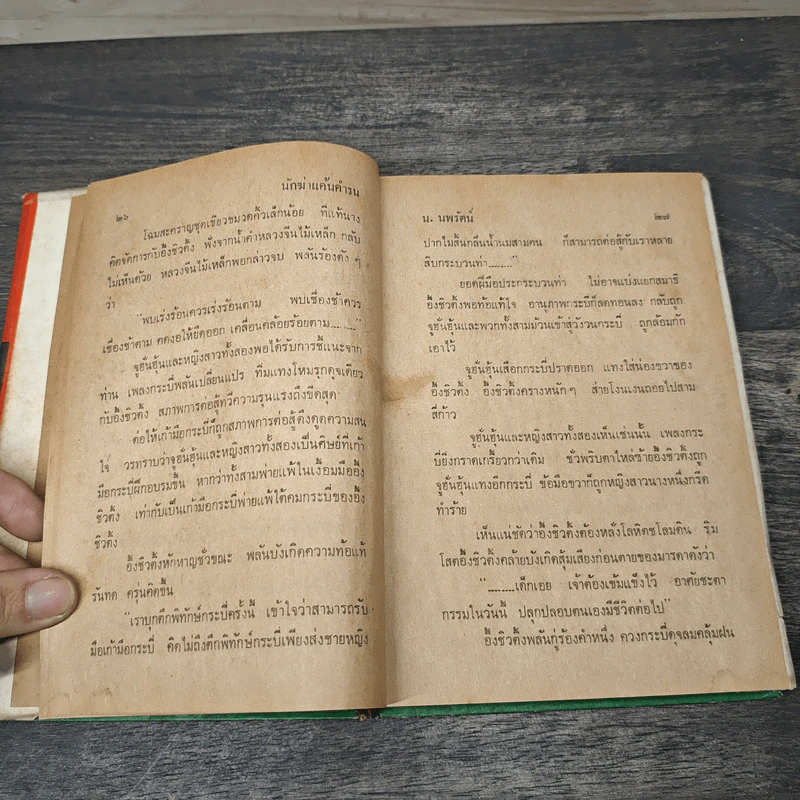 ๒๖
นักฆ่าแค้นคำรน
โฉมสะคราญชุดเขียวขมวดคิ้วเล็กน้อย ที่แท้นาง
คิดจัดการกับอึ้งชิวตั้ง ฟังจากน้ำคำหลวงจีนไม้เหล็ก กลับ
ไม่เห็นด้วย หลวงจีนไม้เหล็กพอกล่าวจบ พลันร้องดัง ๆ
ว่า
"พบเร่งร้อนควรเร่งร้อนตาม พบเชื่องช้าควร
เชื่องช้าตาม คดงอให้ยืดออก เคลื่อนคล้อยร้อยตาม........"
จูฮั่นฮุ้นและหญิงสาวทั้งสองพอได้รับการชี้แนะจาก
ท่าน เพลงกระบี่พลันเปลี่ยนแปร ทิ่มแทงโหมรุกดุจเดียว
กับอึ้งชิวตั้ง สภาพการต่อสู้ทวีความรุนแรงถึงขีดสุด
ต่อให้เก้ามือกระบี่ก็ถูกสภาพการต่อสู้ดึงดูดความสน
ใจ วรทราบว่าจูฮั่นฮุ้นและหญิงสาวทั้งสองเป็นศิษย์ที่เก้า
มือกระบี่ฝึกอบรมขึ้น หากว่าทั้งสามพ่ายแพ้ในเงื้อมมืออึ้ง
ชิวตั้ง เท่ากับเป็นเก้ามือกระบี่พ่ายแพ้ใต้คมกระบี่ของอึ้ง
ชิวตั้ง
อึ้งชิวตั้งหักหาญชั่วขณะ พลันบังเกิดความท้อแท้
รันทด ครุ่นคิดขึ้น
"เราบุกตึกพิทักษ์กระบี่ครั้งนี้ เข้าใจว่าสามารถรับ
มือเก้ามือกระบี่ คิดไม่ถึงตึกพิทักษ์กระบี่เพียงส่งชายหญิง
น. นพรัตน์
๒๗
ปากไม่สิ้นกลิ่นน้ำนมสามคน ก็สามารถต่อสู้กับเราหลาย
สิบกระบวนท่า........"
ยอดฝีมือประกระบวนท่า ไม่อาจแบ่งแยกสมาธิ
อึ้งชิวตั้งพอท้อแท้ใจ อานุภาพกระบี่ก็ลดทอนลง กลับถูก
จูฮั่นฮุ้นและพวกทั้งสามม้วนเข้าสู่วังวนกระบี่ ถูกล้อมกัก
เอาไว้
จูฮั่นฮุ้นเสือกกระบี่ปราดออก แทงใส่น่องขวาของ
อึ้งชิวตั้ง อึ้งชิวตั้งครางหนัก ๆ ส่ายโงนเงนถอยไปสาม
สี่ก้าว
จูฮั่นฮุ้นและหญิงสาวทั้งสองเห็นเช่นนั้น เพลงกระ
บี่ยิ่งกราดเกรี้ยวกว่าเดิม ชั่วพริบตาไหล่ซ้ายอึ้งชิวตั้งถูก
จูฮั่นฮุ้นแทงอีกกระบี่ ข้อมือขวาก็ถูกหญิงสาวนางหนึ่งกรีด
ทำร้าย
เห็นแน่ชัดว่าอึ้งชิวตั้งต้องหลั่งโลหิตชโลมดิน ริม
โสตอึ้งชิวตั้งคล้ายบังเกิดสุ้มเสียงก่อนตายของมารดาดังว่า
"........เด็กเอย เจ้าต้องเข้มแข็งไว้ อาศัยชะตา
กรรมในวันนี้ ปลุกปลอบตนเองมีชีวิตต่อไป"
อึ้งชิวตั้งพลันกู่ร้องคำหนึ่ง ควงกระบี่ดุจลมคลุ้มฝน